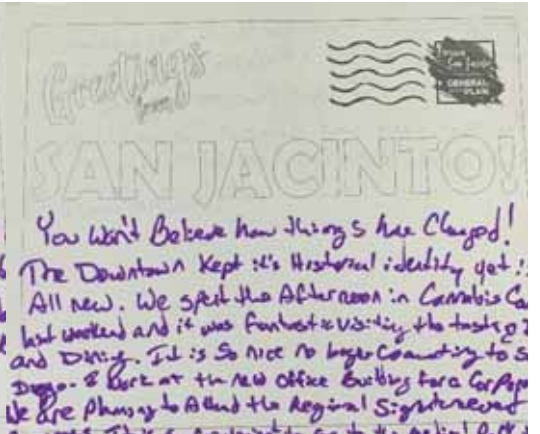 Greetings
from
SAN JACINTO!
GENERAL
PLAN
You Won't Believe how things have Changed!
The Downtown Kept it's Historical identity yet
All new. We spent the Afternoon in Cannabis
last weekend and it was fantastic visiting the tasting
and Dining. It is So nice no longer Commuting to S
Diego. I work at the new office Building for a
We are Planning to Attend the Regional